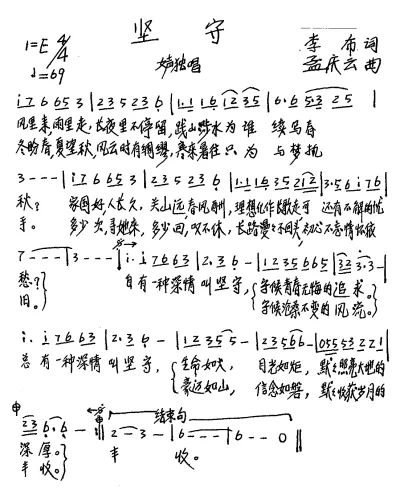 坚 守
女声独唱
1=E 4/4
♩=69
李 布 词
孟庆云 曲
i 7 6 6 5 3 | 2 3 5 2 3 6 | 1·1 1 6 1 2 3 5 | 6·6 5 3 2 5 |
风里来,雨里走,长夜里不停留,跋山涉水为 谁 续写春
冬盼春,夏望秋,风云时有绸缪,寒来暑往只为 与梦执
3 - - - | i 7 6 6 5 3 | 2 3 5 2 3 6 | 1·1 1 6 3 5 2 1 2 | 3·5 6 i 7 6 |
秋? 家国好,人长久,关山远春风酬,理想化作长歌走可 还有不解的忧
手。 多少次,寻她来,多少回,叹不休,长路漫漫不回头 初心不吝情怀依
7 - - - | 3 - - - | i· i 7 6 6 3 | 2·3 6 - | 1 2 3 5 6 6 5 | 3 2 3·3 - |
愁? 自有一种深情叫坚守, 守候青春无悔的追 求。
旧。 守候沧桑不变的风 流。
i· i 7 6 6 3 | 2·3 6 - | 1 2 3 5 5 - | 2 3 5 6 6 - | 0 5 5 5 3 2 2 1 |
总 有一种深情 叫 坚 守, 生命如火, 目光如炬, 默默照亮大地的
豪迈如山, 信念如磐, 默默收获岁月的
2 3 6·6 - | 结束句 2 - 3 - | 6 - - - | 6 - - 0 ‖
深 厚。 丰 收。
丰 收。